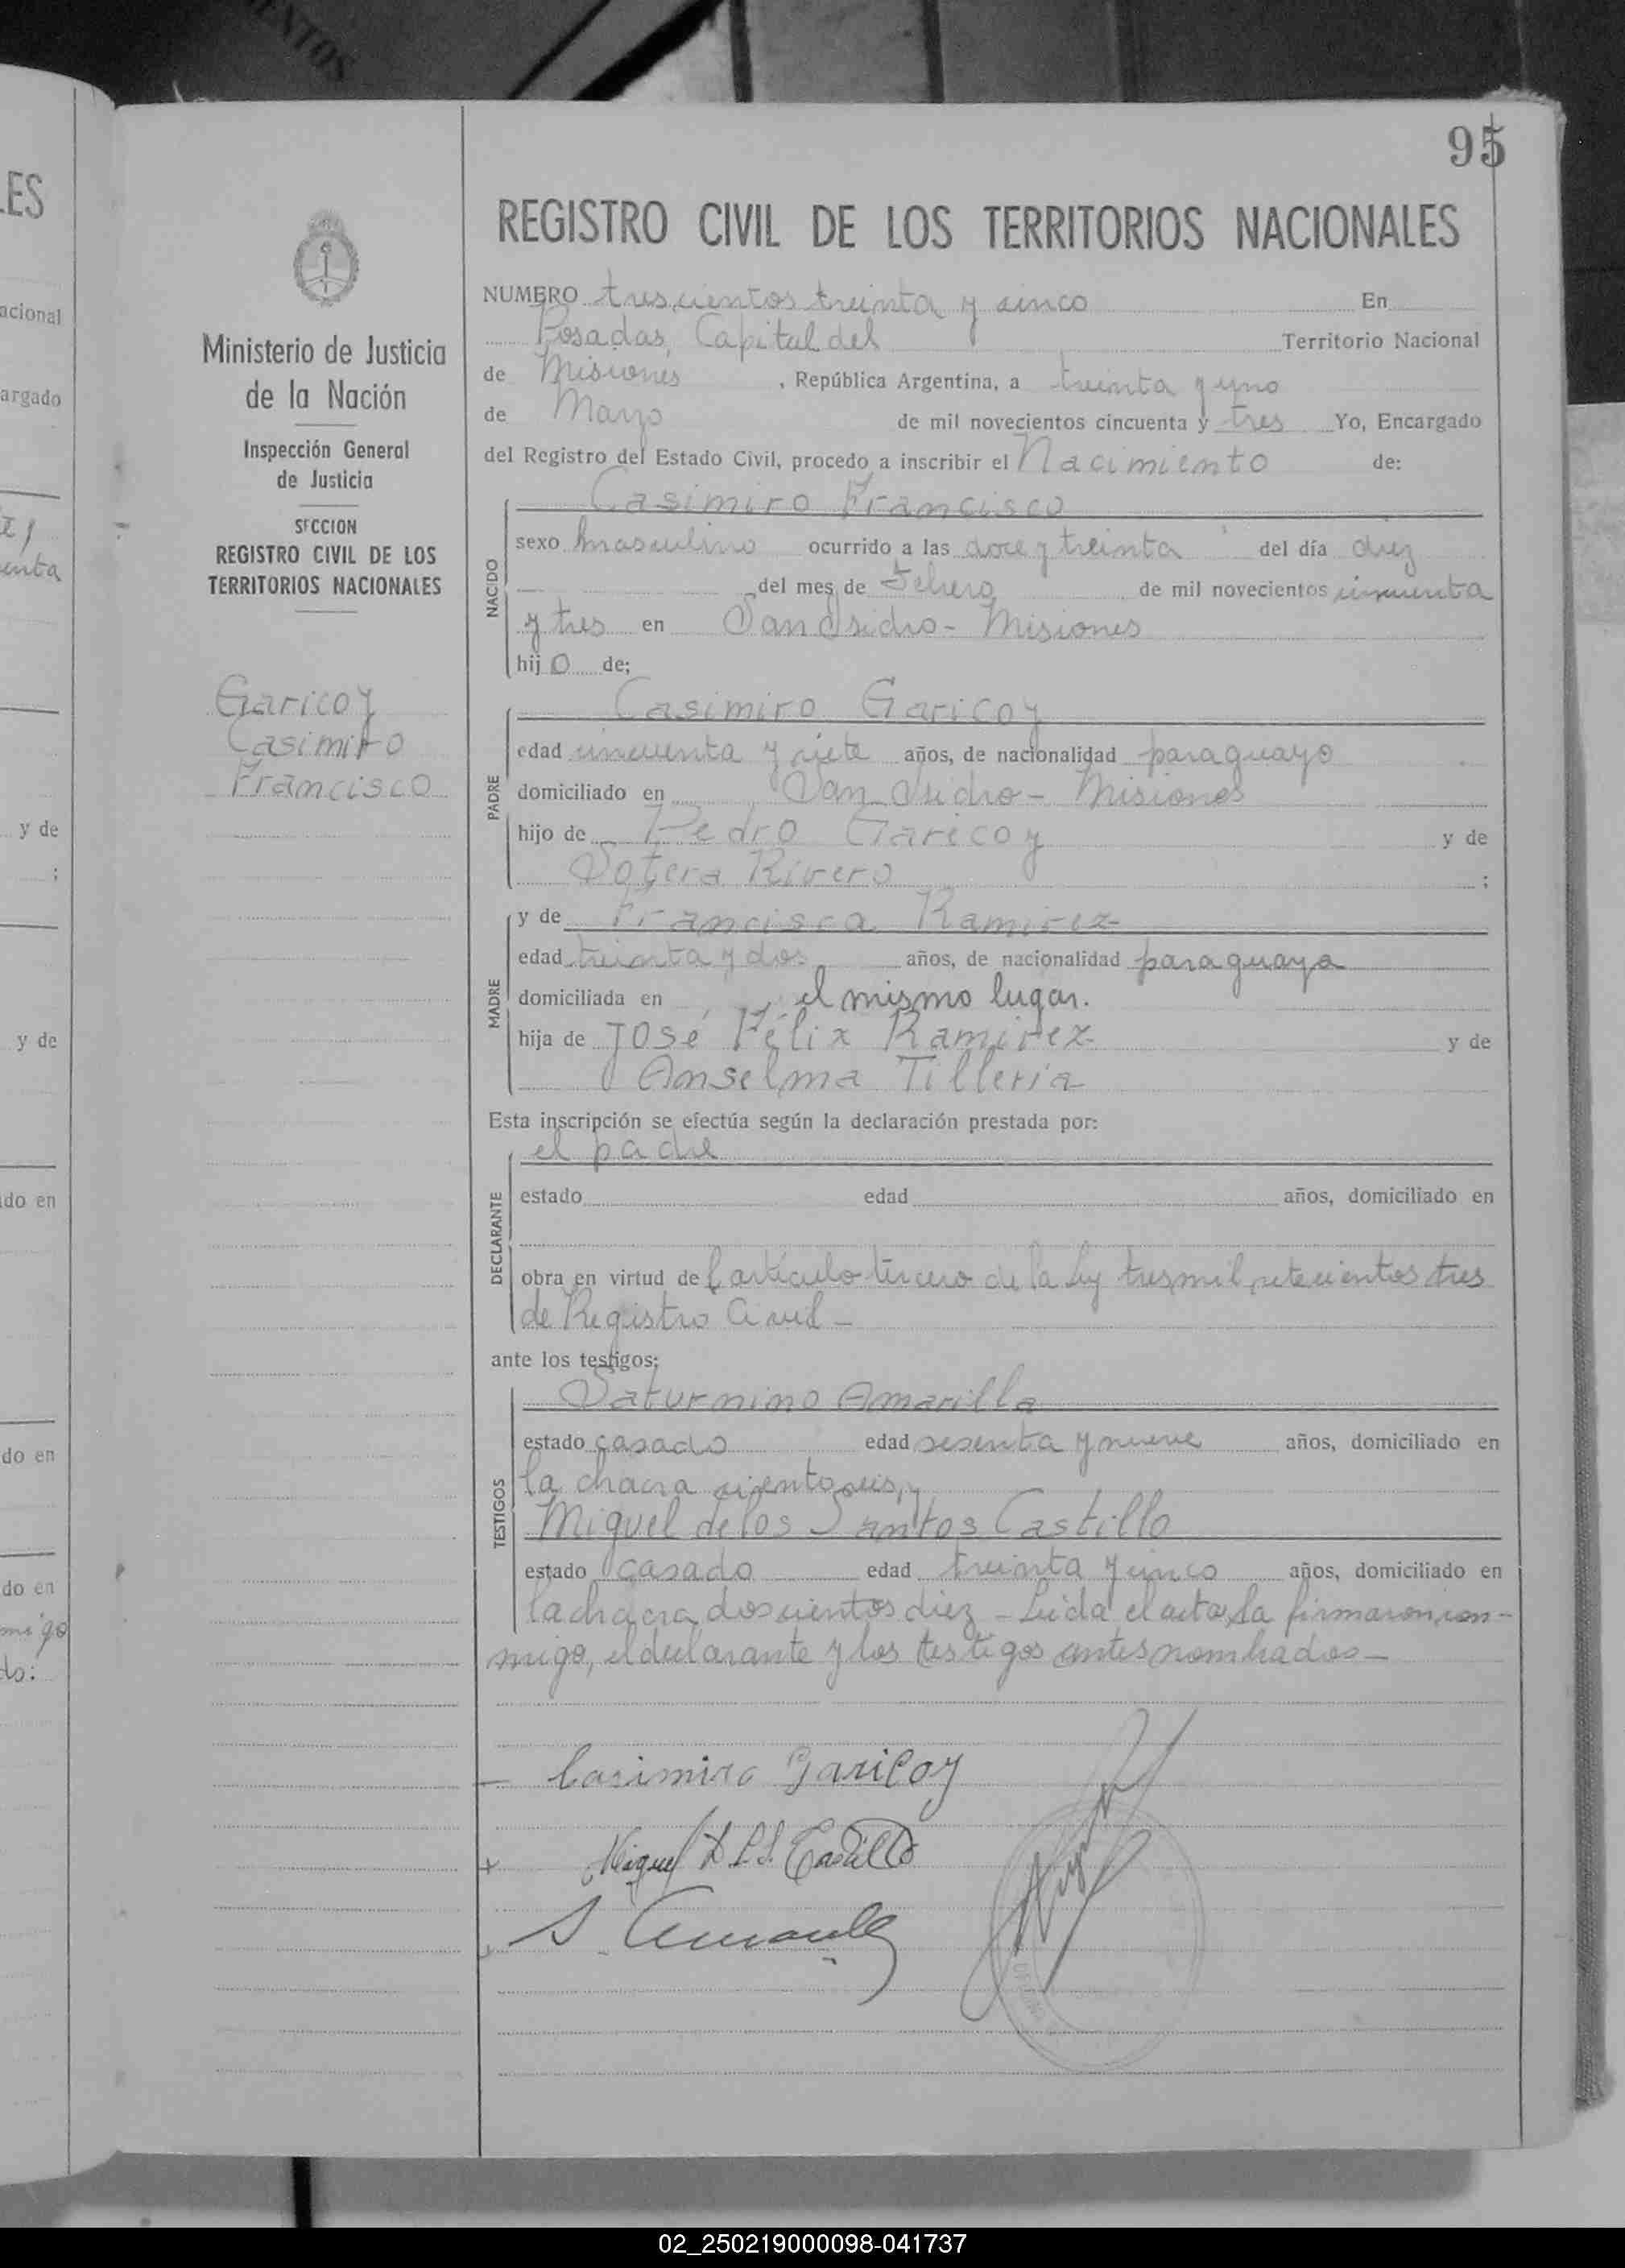 95
REGISTRO CIVIL DE LOS TERRITORIOS NACIONALES
NUMERO trescientos treinta y cinco En
Posadas, Capital del Territorio Nacional
de Misiones , República Argentina, a treinta y uno
de Marzo de mil novecientos cincuenta y tres Yo, Encargado
del Registro del Estado Civil, procedo a inscribir el Nacimiento de:
NACIDO
Casimiro Francisco
sexo masculino ocurrido a las doce y treinta del día diez
del mes de Febrero de mil novecientos cincuenta
y tres en San Isidro - Misiones
hijo de:
PADRE
Casimiro Garicoy
edad cincuenta y siete años, de nacionalidad paraguayo
domiciliado en San Isidro - Misiones
hijo de Pedro Garicoy y de
Sotera Rivero ;
MADRE
y de Francisca Ramirez
edad treinta y dos años, de nacionalidad paraguaya
domiciliada en el mismo lugar.
hija de José Félix Ramirez y de
Anselma Tilleria
Esta inscripción se efectúa según la declaración prestada por:
DECLARANTE
el padre
estado edad años, domiciliado en
obra en virtud del artículo tercero de la ley tres mil setecientos tres
de Registro Civil -
ante los testigos:
TESTIGOS
Saturnino Amarilla
estado casado edad sesenta y nueve años, domiciliado en
la chacra ciento seis, y
Miguel de los Santos Castillo
estado casado edad treinta y cinco años, domiciliado en
la chacra doscientos diez - Leida el acta, la firmaron con-
migo, el declarante y los testigos antes nombrados -
Casimiro Garicoy
Miguel D L S. Castillo
S. Amarilla
Ministerio de Justicia
de la Nación
Inspección General
de Justicia
SECCION
REGISTRO CIVIL DE LOS
TERRITORIOS NACIONALES
Garicoy
Casimiro
Francisco
LES
acional
argado
enta
y de
;
y de
ido en
do en
do en
migo
do:
02_250219000098-041737